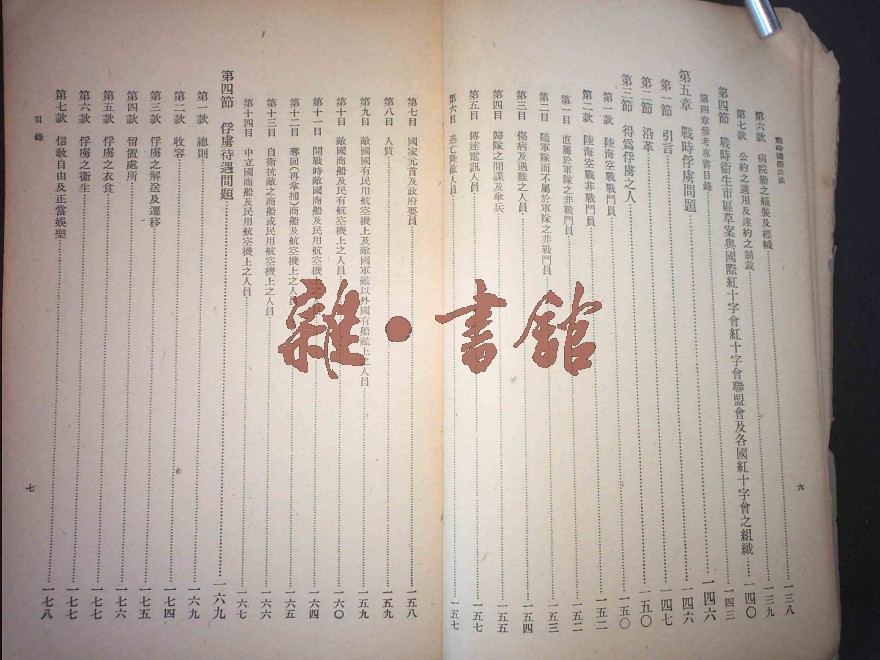 戰時國際公法
第六款 病院船之艤裝及標幟 一三八
第七款 公約之適用及違約之制裁 一三九
第四節 戰時衞生市區草案與國際紅十字會紅十字會聯盟會及各國紅十字會之組織 一四〇
第四章參考專書目錄 一四三
第五章 戰時俘虜問題 一四六
第一節 引言 一四六
第二節 沿革 一四七
第三節 得爲俘虜之人 一五〇
第一款 陸海空戰鬥員 一五〇
第二款 陸海空戰非戰鬥員 一五二
第一目 直屬於軍隊之非戰鬥員 一五二
第二目 隨軍隊而不屬於軍隊之非戰鬥員 一五三
第三目 傷病及遇難之人員 一五四
第四目 歸隊之間諜及傘兵 一五五
第五目 傳達電訊人員 一五七
第六目 逃亡降敵人員 一五七
六
第七目 國家元首及政府要員 一五八
第八目 人質 一五九
第九目 敵國國有民用航空機上及敵國軍艦以外國有船艦上之人員 一五九
第十目 敵國商船及民有航空機上之人員 一六〇
第十一目 開戰時敵國商船及民用航空機上之人員 一六四
第十二目 奪回(再拿捕)商船及航空機上之人員 一六五
第十三目 自衞抗敵之商船或民用航空機上之人員 一六六
第十四目 中立國商船及民用航空機上之人員 一六七
第四節 俘虜待遇問題 一六九
第一款 總則 一六九
第二款 收容 一七四
第三款 俘虜之解送及遷移 一七五
第四款 留置處所 一七六
第五款 俘虜之衣食 一七七
第六款 俘虜之衞生 一七七
第七款 信敎自由及正當娛樂 一七八
目錄
七
雜·書館